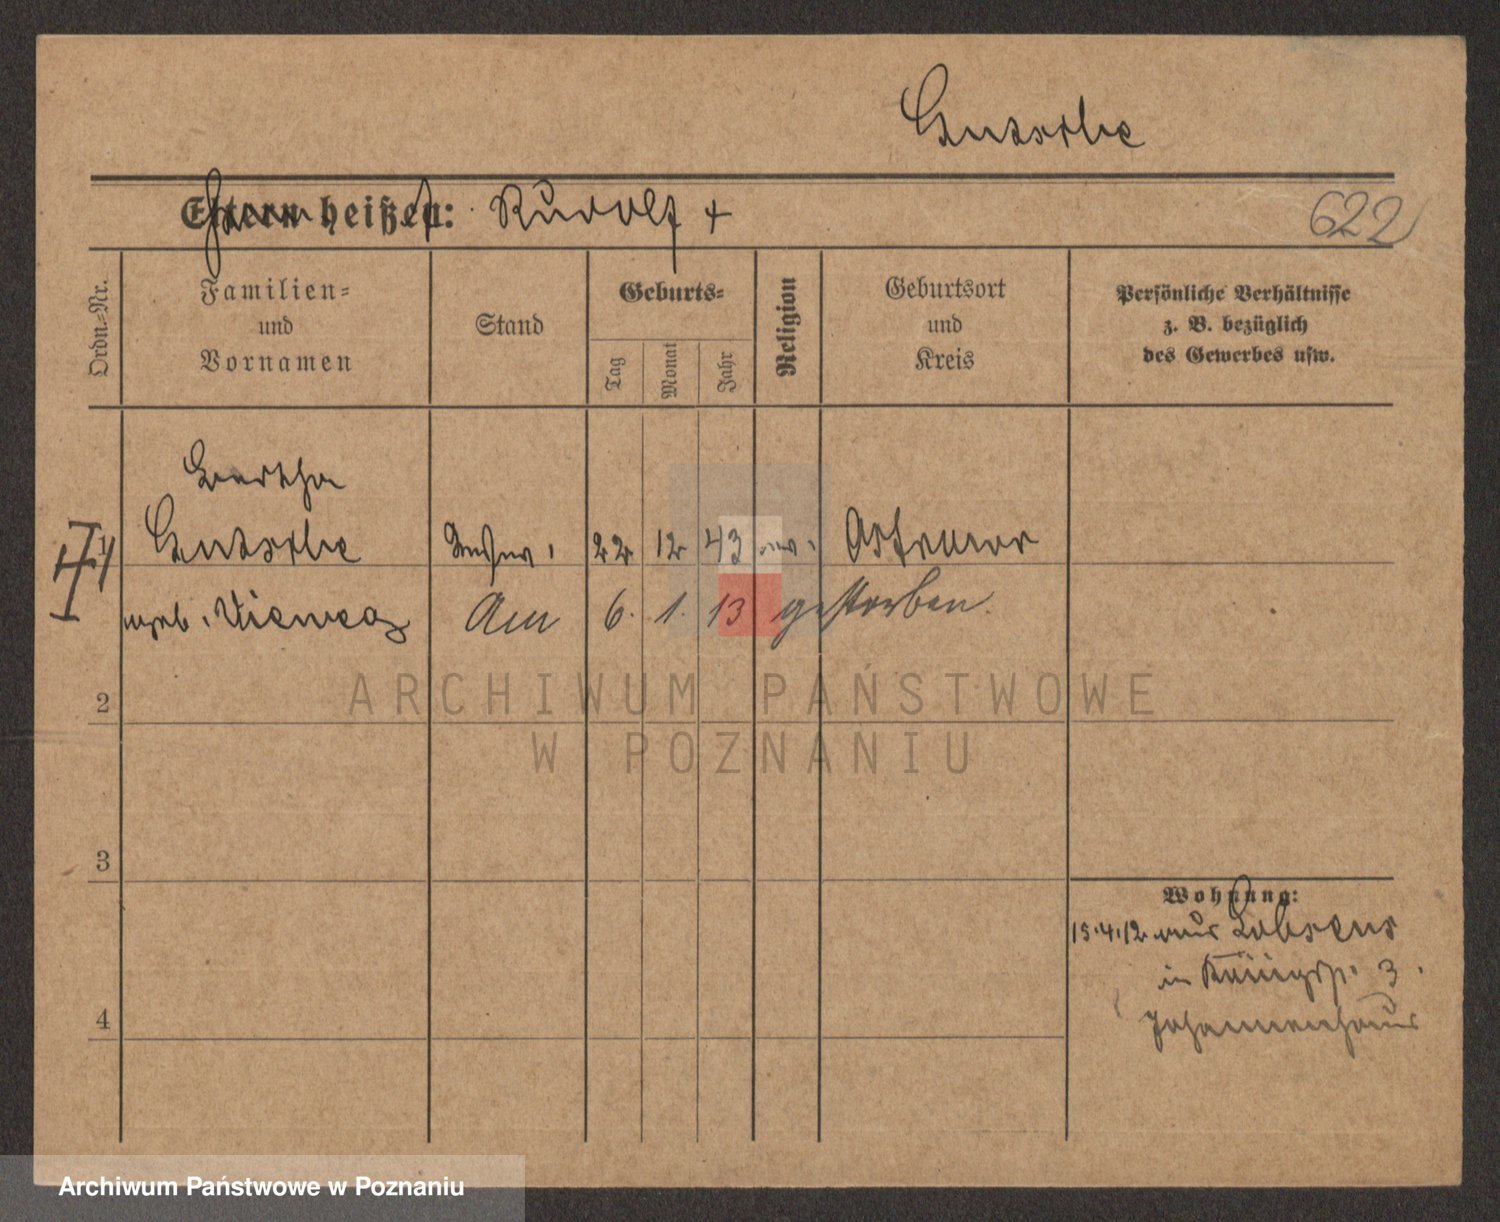 Eltern heißen: Rudolf +
622
Ordn=Nr.
Familien=
und
Vornamen
Stand
Geburts=
Tag
Monat
Jahr
Religion
Geburtsort
und
Kreis
Persönliche Verhältnisse
z. B. bezüglich
des Gewerbes usw.
Bertha
1
22 12 43
geb. Vieweg
Am 6. 1. 13 gestorben.
2
3
4
Wohnung:
15.4.12 aus Lobsens
in Königspl. 3.
Johannenhaus
ARCHIWUM PAŃSTWOWE
W POZNANIU
Archiwum Państwowe w Poznaniu